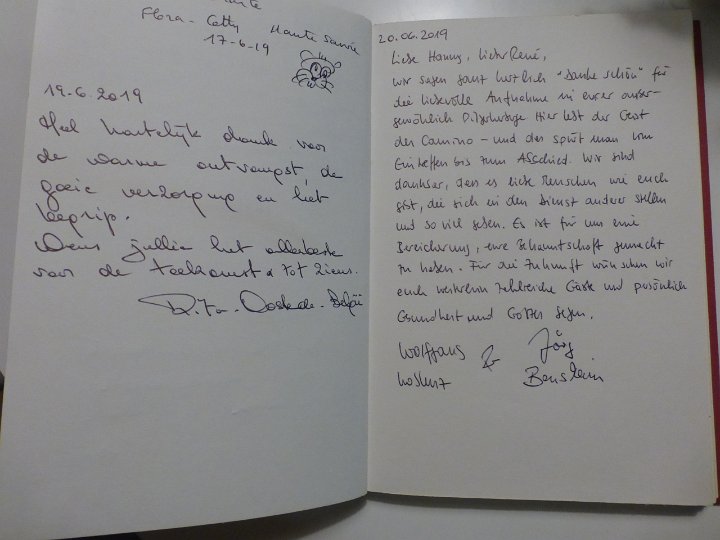 Flora - Cetty Haute Savoie
17-6-19
19.6.2019
Heel hartelijk dank voor
de warme ontvangst, de
goeie verzorging en het
begrip.
Wens jullie het allerbeste
voor de toekomst & tot ziens.
Rita - Oostende - België
20.06.2019
Liebe Hanny, lieber René,
wir sagen ganz herzlich "danke schön" für
die liebevolle Aufnahme in eurer außer-
gewöhnlich Pilgerherberge Hier lebt der Geist
des Camino - und das spürt man vom
Eintreffen bis zum Abschied. Wir sind
dankbar, dass es liebe Menschen wie euch
gibt, die sich in den Dienst anderer stellen
und so viel geben. Es ist für uns eine
Bereicherung, eure Bekanntschaft gemacht
zu haben. Für die Zukunft wünschen wir
euch weiterhin zahlreiche Gäste und persönlich
Gesundheit und Gottes Segen.
Wolfgang & Jörg
Koblenz Bensheim